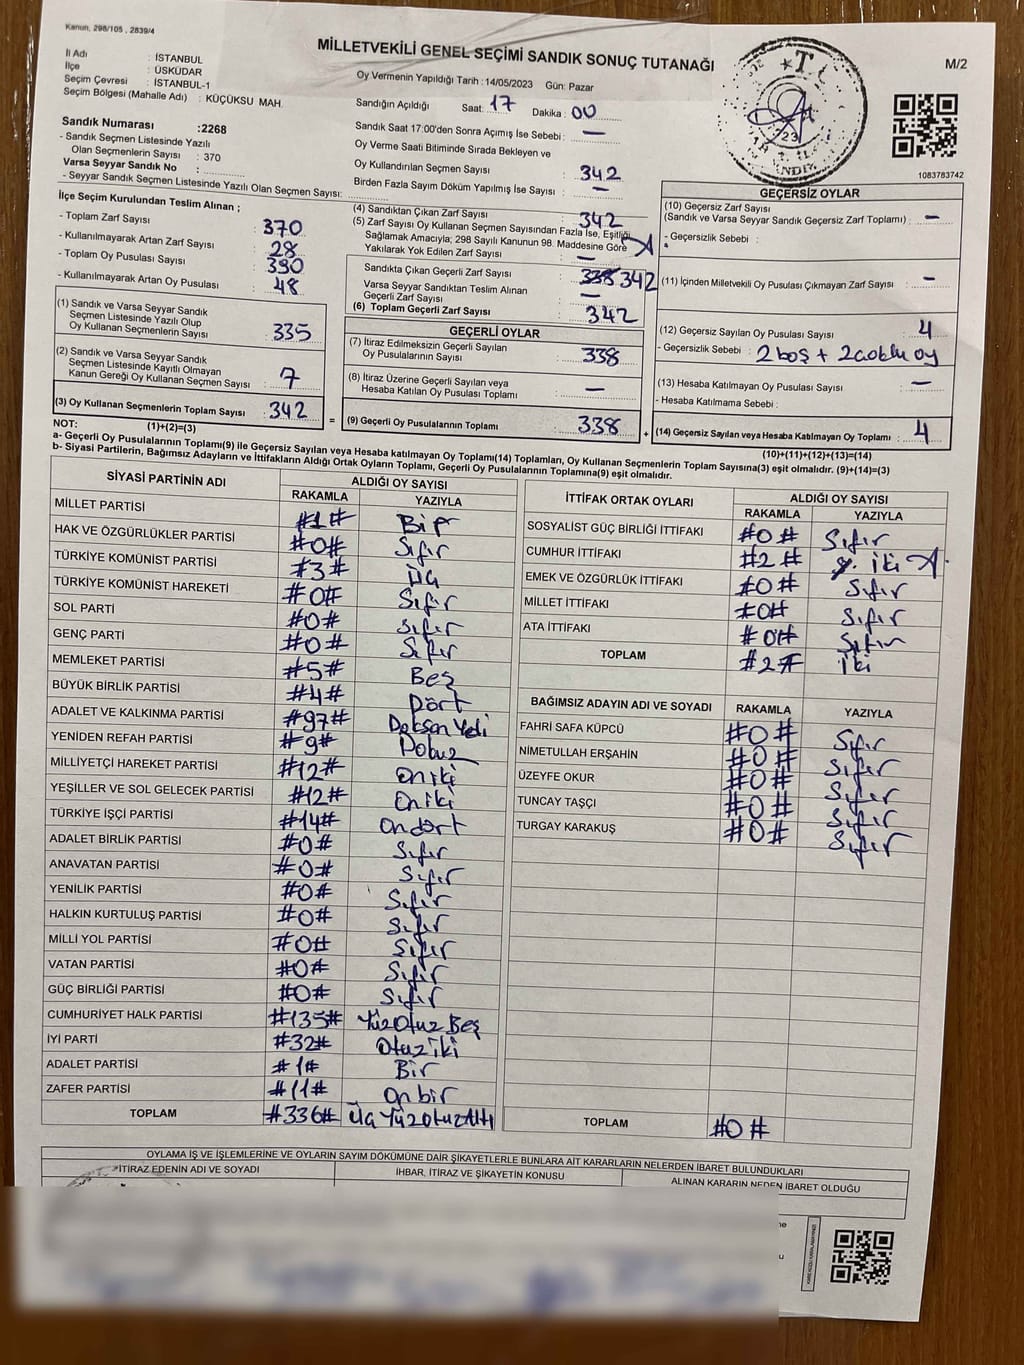 Kanun, 298/105 , 2839/4
MİLLETVEKİLİ GENEL SEÇİMİ SANDIK SONUÇ TUTANAĞI
M/2
İl Adı : İSTANBUL
İlçe : ÜSKÜDAR
Seçim Çevresi : İSTANBUL-1
Seçim Bölgesi (Mahalle Adı) : KÜÇÜKSU MAH.
Oy Vermenin Yapıldığı Tarih : 14/05/2023 Gün: Pazar
Sandığın Açıldığı Saat: 17 Dakika : 00
Sandık Saat 17:00'den Sonra Açımış İse Sebebi : —
Oy Verme Saati Bitiminde Sırada Bekleyen ve
Oy Kullandırılan Seçmen Sayısı : 342
Birden Fazla Sayım Döküm Yapılmış İse Sayısı : —
1083783742
Sandık Numarası :2268
- Sandık Seçmen Listesinde Yazılı
Olan Seçmenlerin Sayısı : 370
Varsa Seyyar Sandık No :
- Seyyar Sandık Seçmen Listesinde Yazılı Olan Seçmen Sayısı:
İlçe Seçim Kurulundan Teslim Alınan ;
- Toplam Zarf Sayısı : 370
- Kullanılmayarak Artan Zarf Sayısı : 28
- Toplam Oy Pusulası Sayısı : 390
- Kullanılmayarak Artan Oy Pusulası : 48
(1) Sandık ve Varsa Seyyar Sandık
Seçmen Listesinde Yazılı Olup
Oy Kullanan Seçmenlerin Sayısı : 335
(2) Sandık ve Varsa Seyyar Sandık
Seçmen Listesinde Kayıtlı Olmayan
Kanun Gereği Oy Kullanan Seçmen Sayısı : 7
(3) Oy Kullanan Seçmenlerin Toplam Sayısı : 342
(1)+(2)=(3)
(4) Sandıktan Çıkan Zarf Sayısı : 342
(5) Zarf Sayısı Oy Kullanan Seçmen Sayısından Fazla İse, Eşitliği
Sağlamak Amacıyla; 298 Sayılı Kanunun 98. Maddesine Göre
Yakılarak Yok Edilen Zarf Sayısı : —
Sandıkta Çıkan Geçerli Zarf Sayısı : 338 342
Varsa Seyyar Sandıktan Teslim Alınan
Geçerli Zarf Sayısı : —
(6) Toplam Geçerli Zarf Sayısı : 342
GEÇERLİ OYLAR
(7) İtiraz Edilmeksizin Geçerli Sayılan
Oy Pusulalarının Sayısı : 338
(8) İtiraz Üzerine Geçerli Sayılan veya
Hesaba Katılan Oy Pusulası Toplamı : —
= (9) Geçerli Oy Pusulalarının Toplamı : 338
GEÇERSİZ OYLAR
(10) Geçersiz Zarf Sayısı
(Sandık ve Varsa Seyyar Sandık Geçersiz Zarf Toplamı) : —
- Geçersizlik Sebebi :
(11) İçinden Milletvekili Oy Pusulası Çıkmayan Zarf Sayısı : —
(12) Geçersiz Sayılan Oy Pusulası Sayısı : 4
- Geçersizlik Sebebi : 2 boş + 2 çoklu oy
(13) Hesaba Katılmayan Oy Pusulası Sayısı : —
- Hesaba Katılmama Sebebi :
+ (14) Geçersiz Sayılan veya Hesaba Katılmayan Oy Toplamı : 4
(10)+(11)+(12)+(13)=(14)
NOT:
a- Geçerli Oy Pusulalarının Toplamı(9) ile Geçersiz Sayılan veya Hesaba katılmayan Oy Toplamı(14) Toplamları, Oy Kullanan Seçmenlerin Toplam Sayısına(3) eşit olmalıdır. (9)+(14)=(3)
b- Siyasi Partilerin, Bağımsız Adayların ve İttifakların Aldığı Ortak Oyların Toplamı, Geçerli Oy Pusulalarının Toplamına(9) eşit olmalıdır.
SİYASİ PARTİNİN ADI ALDIĞI OY SAYISI
RAKAMLA YAZIYLA
MİLLET PARTİSİ #1# Bir
HAK VE ÖZGÜRLÜKLER PARTİSİ #0# Sıfır
TÜRKİYE KOMÜNİST PARTİSİ #3# Üç
TÜRKİYE KOMÜNİST HAREKETİ #0# Sıfır
SOL PARTİ #0# Sıfır
GENÇ PARTİ #0# Sıfır
MEMLEKET PARTİSİ #5# Beş
BÜYÜK BİRLİK PARTİSİ #4# Dört
ADALET VE KALKINMA PARTİSİ #97# Doksan Yedi
YENİDEN REFAH PARTİSİ #9# Dokuz
MİLLİYETÇİ HAREKET PARTİSİ #12# On iki
YEŞİLLER VE SOL GELECEK PARTİSİ #12# On iki
TÜRKİYE İŞÇİ PARTİSİ #14# On dört
ADALET BİRLİK PARTİSİ #0# Sıfır
ANAVATAN PARTİSİ #0# Sıfır
YENİLİK PARTİSİ #0# Sıfır
HALKIN KURTULUŞ PARTİSİ #0# Sıfır
MİLLİ YOL PARTİSİ #0# Sıfır
VATAN PARTİSİ #0# Sıfır
GÜÇ BİRLİĞİ PARTİSİ #0# Sıfır
CUMHURİYET HALK PARTİSİ #135# Yüz Otuz Beş
İYİ PARTİ #32# Otuz iki
ADALET PARTİSİ #1# Bir
ZAFER PARTİSİ #11# On bir
TOPLAM #336# Üç Yüz Otuz Altı
İTTİFAK ORTAK OYLARI ALDIĞI OY SAYISI
RAKAMLA YAZIYLA
SOSYALİST GÜÇ BİRLİĞİ İTTİFAKI #0# Sıfır
CUMHUR İTTİFAKI #2# İki
EMEK VE ÖZGÜRLÜK İTTİFAKI #0# Sıfır
MİLLET İTTİFAKI #0# Sıfır
ATA İTTİFAKI #0# Sıfır
TOPLAM #2# İki
BAĞIMSIZ ADAYIN ADI VE SOYADI RAKAMLA YAZIYLA
FAHRİ SAFA KÜPCÜ #0# Sıfır
NİMETULLAH ERŞAHİN #0# Sıfır
ÜZEYFE OKUR #0# Sıfır
TUNCAY TAŞÇI #0# Sıfır
TURGAY KARAKUŞ #0# Sıfır
TOPLAM #0#
OYLAMA İŞ VE İŞLEMLERİNE VE OYLARIN SAYIM DÖKÜMÜNE DAİR ŞİKAYETLERLE BUNLARA AİT KARARLARIN NELERDEN İBARET BULUNDUKLARI
İTİRAZ EDENİN ADI VE SOYADI İHBAR, İTİRAZ VE ŞİKAYETİN KONUSU ALINAN KARARIN NEDEN İBARET OLDUĞU